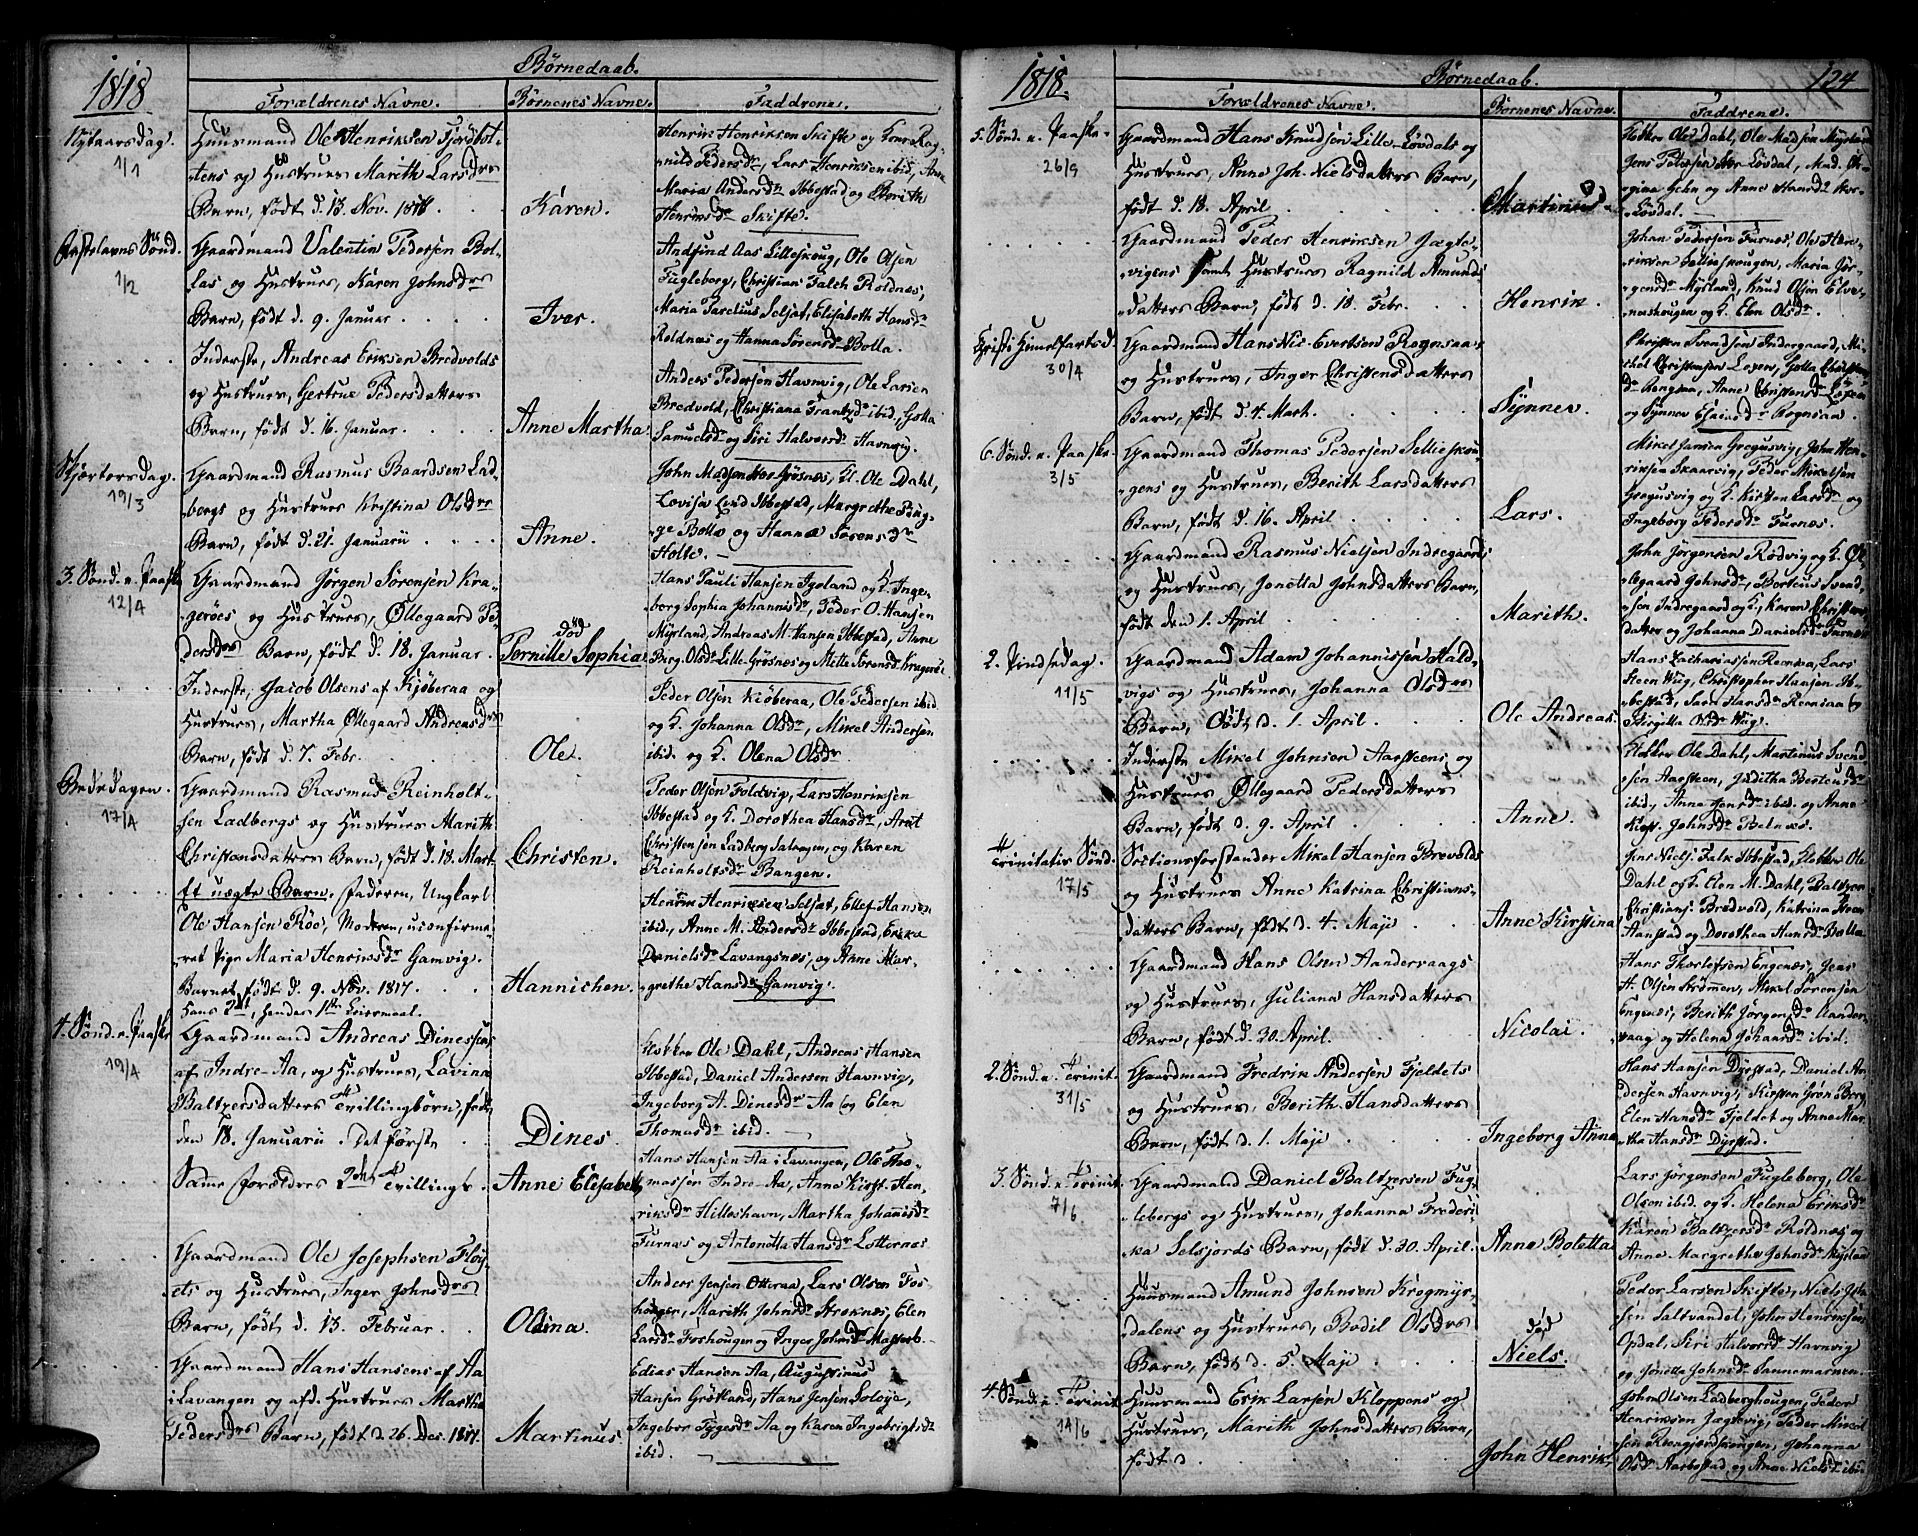 1818
Børnedaab.
Forældrenes Navne. Børnenes Navne. Faddrene.
Nytaarsdag.
1/1
Huusmand Ole Henriksen Fjordbot-
tens og Hustrues Marith Larsdrs
Barn, født d. 13. Nov. 1818
Karen.
Henrik Henriksen Skifte og Kone Rag-
nild Pedersdr, Lars Henriksen ibid, Ane
Maria Andersdr Ibbestad og Berith
Henriksdr Skifte.
Fastelavns Sönd.
1/2
Gaardmand Valentin Pedersen Bol-
las og Hustrues, Karen Johnsdrs
Barn, født d. 9. Januar
Iver.
Andfind Aas Lilleskoug, Ole Olsen
Fugleborg, Christian Falch Roldnes,
Maria Parelius Selset, Elisabeth Hansdr
Roldnes og Hanna Sørensdr Bolla.
Inderste, Andreas Eriksen Bredvolds
og Hustrues, Gertrue Pedersdatters
Barn, født d. 16. Januar.
Anne Martha
Anders Pedersen Havnvig, Ole Larsen
Bredvold, Christiana Frantzdr ibid, Golla
Samuelsdr og Siri Halvorsdr Havnvig.
Skjærtorsdag.
19/3
Gaardmand Rasmus Baardsen Lad-
bergs og Hustrues Kristina Olsdrs
Barn, født d. 21. Januarii
Anne.
John Madsen Grøsnes, K. Ole Dahl,
Lovisa Lund Ibbestad, Margrethe Byg-
ge Bolla og Hanna Sørensdr
Holte.
3. Sönd. e. Paaske
12/4
Gaardmand Jörgen Sörensen Kra-
gerøes og Hustrues, Øllegaard Pe-
dersdrs Barn, født d. 18. Januar.
död
Pernille Sophia
Hans Pauli Hansen Igeland og K. Inge-
borg Sophia Johannisdr, Peder O. Hansen
Myrland, Andreas M. Hansen Ibbestad, Anne
Birg. Olsdr Lille-Grøsnes og Mette Sørensdr Kragerøe
Inderste, Jacob Olsens af Kjøberaa og
Hustrues, Martha Øllegaard Andreasdrs
Barn, født d. 7. Febr.
Ole.
Peder Olsen Kiøberaa, Ole Pedersen ibid
og K. Johanna Olsdr, Mikel Andersen
ibid. og K. Olena Olsdr
Bededagen.
17/4
Gaardmand Rasmus Reinholt-
sen Ladbergs og Hustrues Marith
Christensdatters Barn, født d. 18. Mart
Christen.
Peder Olsen Foldvig, Lars Henriksen
Ibbestad og K. Dorothea Hansdr, Arnt
Christensen Ladberg Salangen, og Karen
Reinholtsdr Bangen.
Et uægte Barn. Faderen, Ungkarl
Ole Hansen Röe, Moderen, uconfirme-
ret Pige Maria Henriksdr Gamvig.
Barnet født d. 9. Nov. 1817.
Hans 2det, Hendes 1ste Leiermaal.
Hannichen.
Henrik Henriksen Selset, Ellef Hansen
ibid, Anne M. Andersdr Ibbestad, Erika
Danielsdr Lavangsnes, og Anne Mar-
grethe Hansdr Gamvig.
4. Sönd. e. Paaske
19/4
Gaardmand Andreas Dinessens
af Indre-Aa, og Hustrues, Lavina
Baltzersdatters Tvillingbørn, født
den 18. Januarii. Det første
Dines.
Klokker Ole Dahl, Andreas Hansen
Ibbestad, Daniel Andersen Havnvig,
Ingeborg A. Dinesdr Aa og Elen
Thomasdr ibid.
Samme Forældres 2den Tvillingb.
Anne Elisabet
Hans Hansen Aa i Lavangen, Ole Tho-
massen Indre-Aa, Anne Kirst. Hen-
riksdr Hilleshavn, Martha Johannisdr
Furnæs og Antonetta Hansdr Lotternes
Gaardmand Ole Josephsen Fløy-
ets og Hustrues, Inger Johnsdrs
Barn, født d. 13. Februar.
Oldina.
Anders Jensen Otteraa, Lars Olsen Fos-
hougen, Marith Johnsdr Straknes, Elen
Larsdr Foshougen og Inger Johnsdr Massarb.
Gaardmand Hans Hansens af Aa
i Lavangen og afd. Hustrues Martha
Pedersdrs Barn, født d. 26. Dec. 1817.
Martinus
Edias Hansen Aa, Augustinus
Hansen Grötland, Hans Jensen Soløye,
Ingebor Tygesdr Aa og Karen Ingebrigtsdr
ibid.
1818.
Børnedaab.
124
Forældrenes Navne. Børnenes Navne. Faddrene.
5. Sönd. e. Paaske
26/9
Gaardmand Hans Knudsen Lille-Lövdals og
Hustrues, Anne Joh. Nielsdatters Barn,
født d. 18. April.
Martinus
Klokker Ole Dahl, Ole Madsen Myrland
Jens Petersen Lövdal, Mad. Re-
gina Hehn og Anne Hansdr
Lövdal.
Gaardmand Peder Henriksen Jægte-
vigens samt Hustrues Ragnild Amunds
datters Barn, født d. 18. Febr.
Henrik.
Johan Pedersen Furnes, Ole Hen-
riksen Sellieskougen, Maria Jör-
gensdr Myrland, Knud Olsen Elve-
neshougen og K. Elen Olsdr.
Christi Himelfartsd.
30/4
Gaardmand Hans Nic. Evertsen Rogensaas
og Hustrues, Inger Christensdatters
Barn, født d. 4. Mart.
Synner.
Christen Svendsen Indergaard, Mi-
chel Christensen Loxen, Golla Christens
dr Rognsaa, Anne Christensdr Loxen
og Synner Esaiasdr Rognsaa.
6. Sönd. e. Paaske
3/5
Gaardmand Thomas Pedersen Selliesko-
gens og Hustrues, Berith Larsdatters
Barn, født d. 16. April
Lars.
Mikel Jensen Gregusvig, John Hen-
riksen Skaarvig, Peder Mikelsen
Gregusvig og K. Kirsten Larsdr og
Ingeborg Pedersdr Furnes.
Gaardmand Rasmus Nielsen Indregaards
og Hustrues, Jonetta Johnsdatters Barn,
født den 1. April
Marith.
John Jörgensen Rödvig og K. Øl-
legaard Johnsdr, Berteus Svend-
sen Indregaard og K. Karen Christens-
datter og Johanna Danielsdr Furnes
2. Pindsedag.
11/5
Gaardmand Adam Johannissen Hald-
vigs og Hustrues, Johanna Olsdrs
Barn, født d. 1. April
Ole Andreas.
Hans Zachariassen Reensaa, Lars
Steen Vug, Christopher Hansen Ib-
bestad, Sara Hansdr Reensaa og
Birgitta Olsdr Vug.
Inderste Mikel Johnsen Aarsteens og
Hustrues Øllegaard Pedersdatters
Barn, født d. 9. April
Anne.
Klokker Ole Dahl, Martinus Svend
sen Aarsteen, Juditha Berteusdr
ibid, Anna Jensdr ibid. og Anne
Kirst. Johnsdr Belnæs.
Trinitatis Sönd.
17/5
Sectionsforstander Mikel Hansen Brevolds
og Hustrues Anne Katrina Christians-
datters Barn, født d. 4. Maji
Anne Kirstina
Jens Nielsen Falk Ibbestad, Klokker Ole
Dahl og K. Elen M. Dahl, Baltzer
Christians. Bredvold, Katrina Steen
Aanstad og Dorothea Hansdr Bolla
Gaardmand Hans Olsen Aandervaags
og Hustrues, Juliana Hansdatters
Barn, født d. 30. April.
Nicolai.
Hans Thorlefsen Engenes, Jens
A. Olsen Strømmen, Mikel Sörensen
Engenes, Berith Jörgensdr Aander-
vaag og Helena Johansdr ibid.
2. Sönd. e. Trinit.
31/5
Gaardmand Fredrik Andersen Fjeldets
og Hustrues, Berith Hansdatters
Barn, født d. 1. Maji
Ingeborg Anna
Hans Hansen Dyrstad, Daniel An-
dersen Havnvig, Kirsten Grøn Borg,
Elen Hansdr Fjeldet og Anne Mar-
tha Hansdr Dyrstad.
3. Sönd. e. Trinit.
7/6
Gaardmand Daniel Baltzersen Fug-
lebergs og Hustrues, Johanna Frederi-
ka Selsjords Barn, født d. 30. April.
Anne Boletta
Lars Jørgensen Fugleberg, Ole
Olsen ibid og K. Helena Eriksdr
Karen Baltzersdr Roldnes og
Anne Margrethe Johnsdr Myrland
Huusmand Amund Johnsen Krogmyr-
dalens og Hustrues, Bodil Olsdrs
Barn, født d. 5. Maji
död
Niels.
Peder Larsen Skifte, Niels Jen-
sen Saltvandet, John Henriksen
Opdal, Siri Halvorsdr Havnvig
og Jonetta Johnsdr Sannemarken.
4. Sönd. e. Trinit.
14/6
Huusmand Erik Larsen Kloppens og
Hustrues, Marith Johnsdatters Barn,
født d
John Henrik
John Olsen Ladberghougen, Peder
Henriksen Jægtevig, Peder Mikel
sen Reensjordskougen, Johanna
Olsdr Aarbostad og Anne Nielsdr ibid